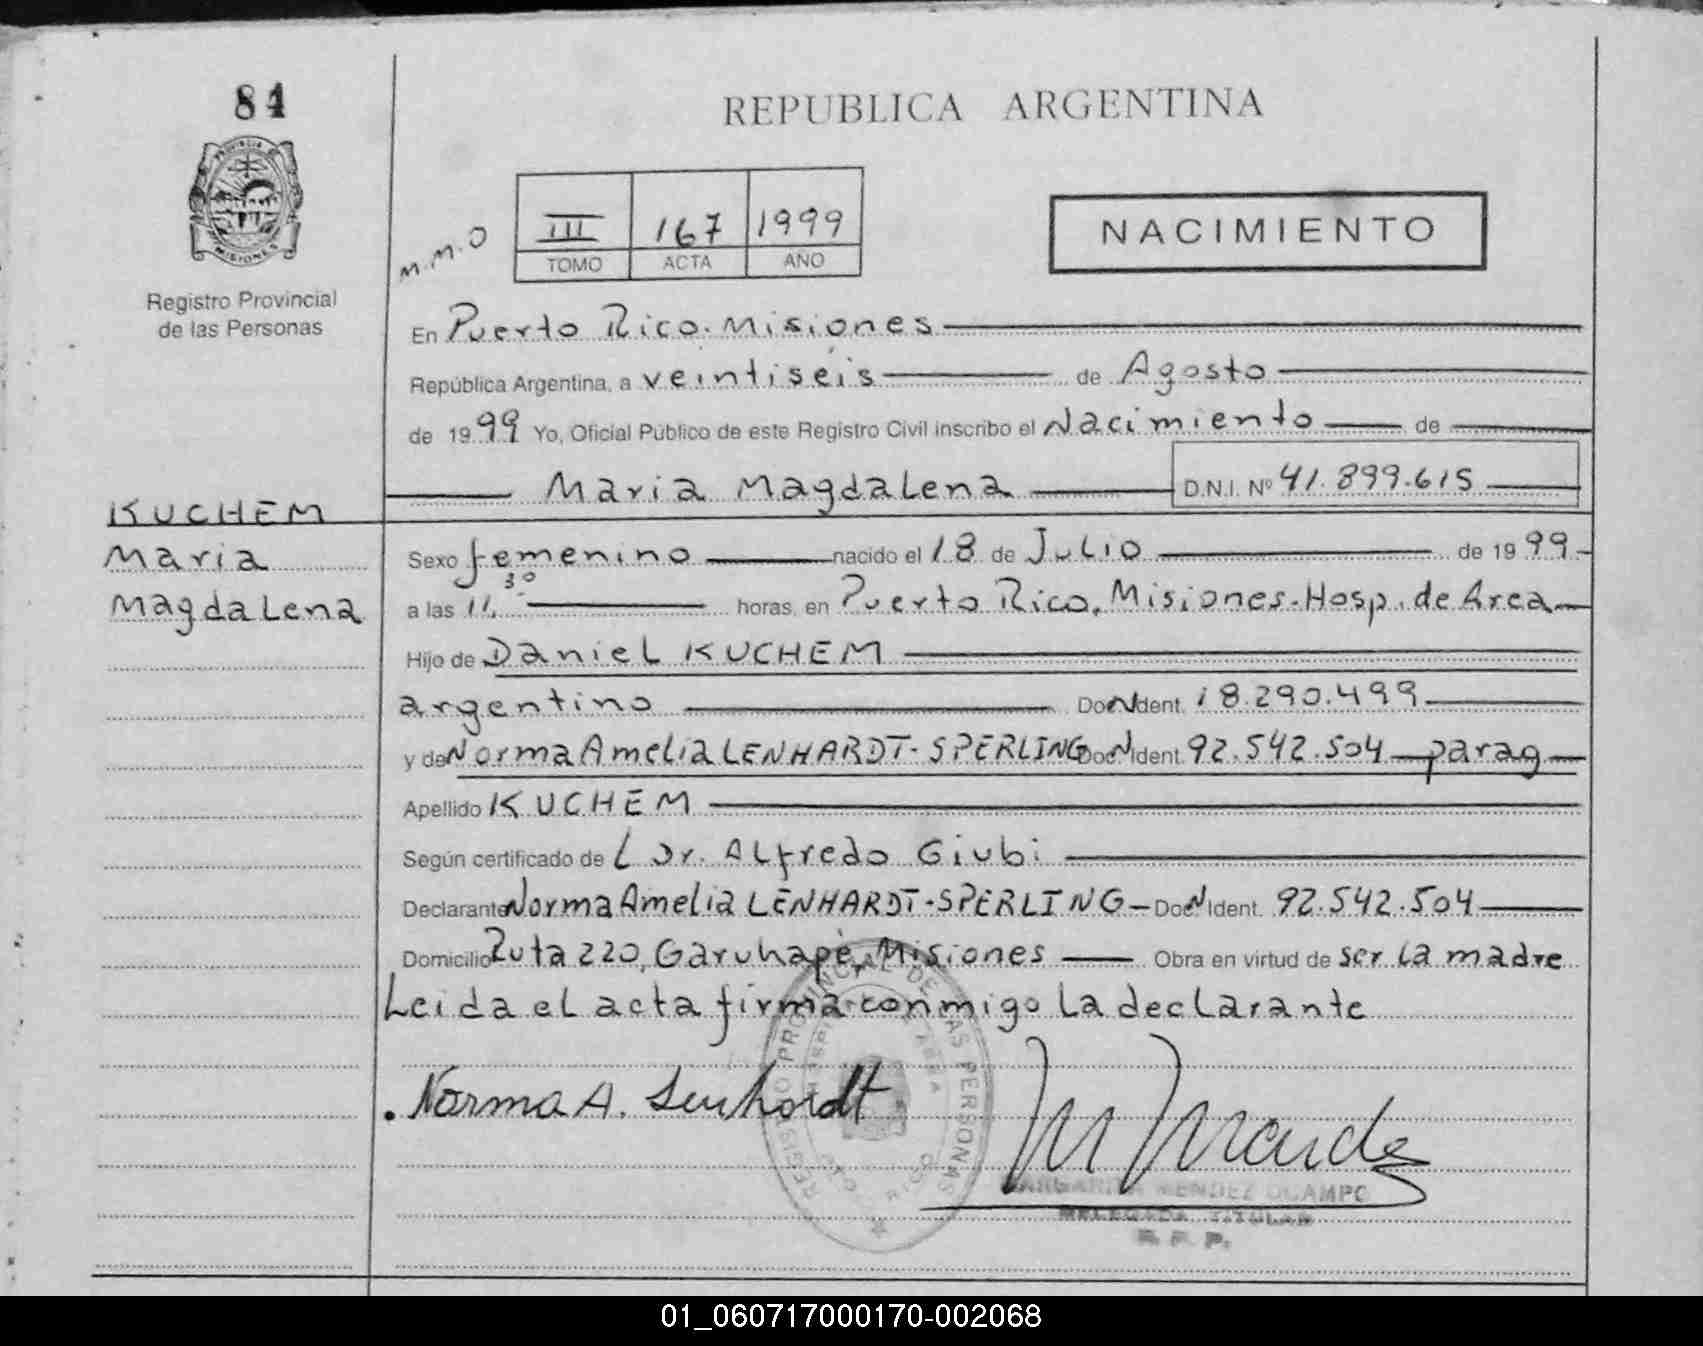 84
REPUBLICA ARGENTINA
PROVINCIA
MISIONES
Registro Provincial
de las Personas
M.M.O
III 167 1999
TOMO ACTA AÑO
NACIMIENTO
En Puerto Rico. Misiones
República Argentina, a veintiséis de Agosto
de 1999 Yo, Oficial Público de este Registro Civil inscribo el Nacimiento de
Maria Magdalena D.N.I. Nº 41.899.615
KUCHEM
Maria
Magdalena
Sexo femenino nacido el 18 de Julio de 1999
a las 11,30 horas, en Puerto Rico, Misiones-Hosp. de Area
Hijo de Daniel KUCHEM
argentino DocN Ident. 18.290.499
y de Norma Amelia LENHARDT-SPERLING DocN Ident. 92.542.504 parag
Apellido KUCHEM
Según certificado de Dr. Alfredo Giubi
Declarante Norma Amelia LENHARDT-SPERLING DocN Ident. 92.542.504
Domicilio Ruta 220, Garuhapé, Misiones Obra en virtud de ser la madre
Leida el acta firma conmigo la declarante
REGISTRO PROVINCIAL DE LAS PERSONAS
Norma A. Lenhardt
MARGARITA MENDEZ OCAMPO
DELEGADA TITULAR
R. P. P.
01_060717000170-002068